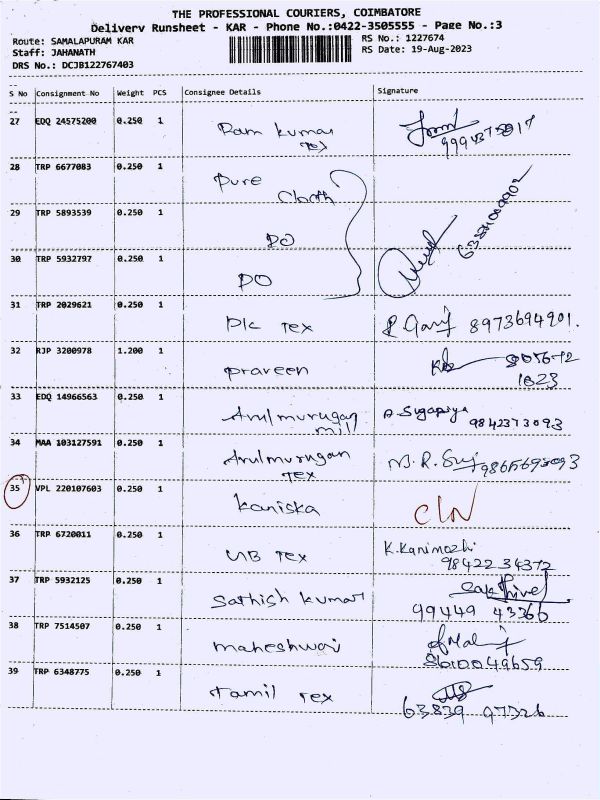 THE PROFESSIONAL COURIERS, COIMBATORE
Delivery Runsheet - KAR - Phone No.:0422-3505555 - Page No.:3
Route: SAMALAPURAM KAR RS No.: 1227674
Staff: JAHANATH RS Date: 19-Aug-2023
DRS No.: DCJB122767403
S No Consignment No Weight PCS Consignee Details Signature
27 EDQ 24575200 0.250 1 Ram Kumar
Tex
28 TRP 6677083 0.250 1 Pure
Cloth
29 TRP 5893539 0.250 1 DO
30 TRP 5932797 0.250 1 DO
31 TRP 2029621 0.250 1 Tex 8973694901.
32 RJP 3200978 1.200 1 Praveen
1823
33 EDQ 14966563 0.250 1 Arulmurugan mill A. Sugapiya
9842373093
34 MAA 103127591 0.250 1 Arulmurugan
Tex M. R.
35 VPL 220107603 0.250 1 Kaniska CLN
36 TRP 6720011 0.250 1 UB Tex K. Kanimozhi
98422 34372
37 TRP 5932125 0.250 1 Sathish Kumar Sakthivel
99449 43366
38 TRP 7514507 0.250 1 Maheshwari
8610049659
39 TRP 6348775 0.250 1 Tamil Tex
63839 97326